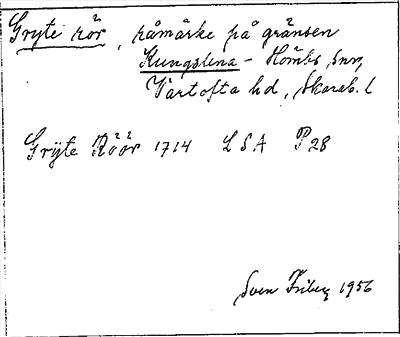 Gryte rör, råmärke på gränsen
Kungslena - Hömbs snr,
Vartofta hd, Skarab. l
Grÿte Röör 1714 LSA P28
Sven Friberg 1956